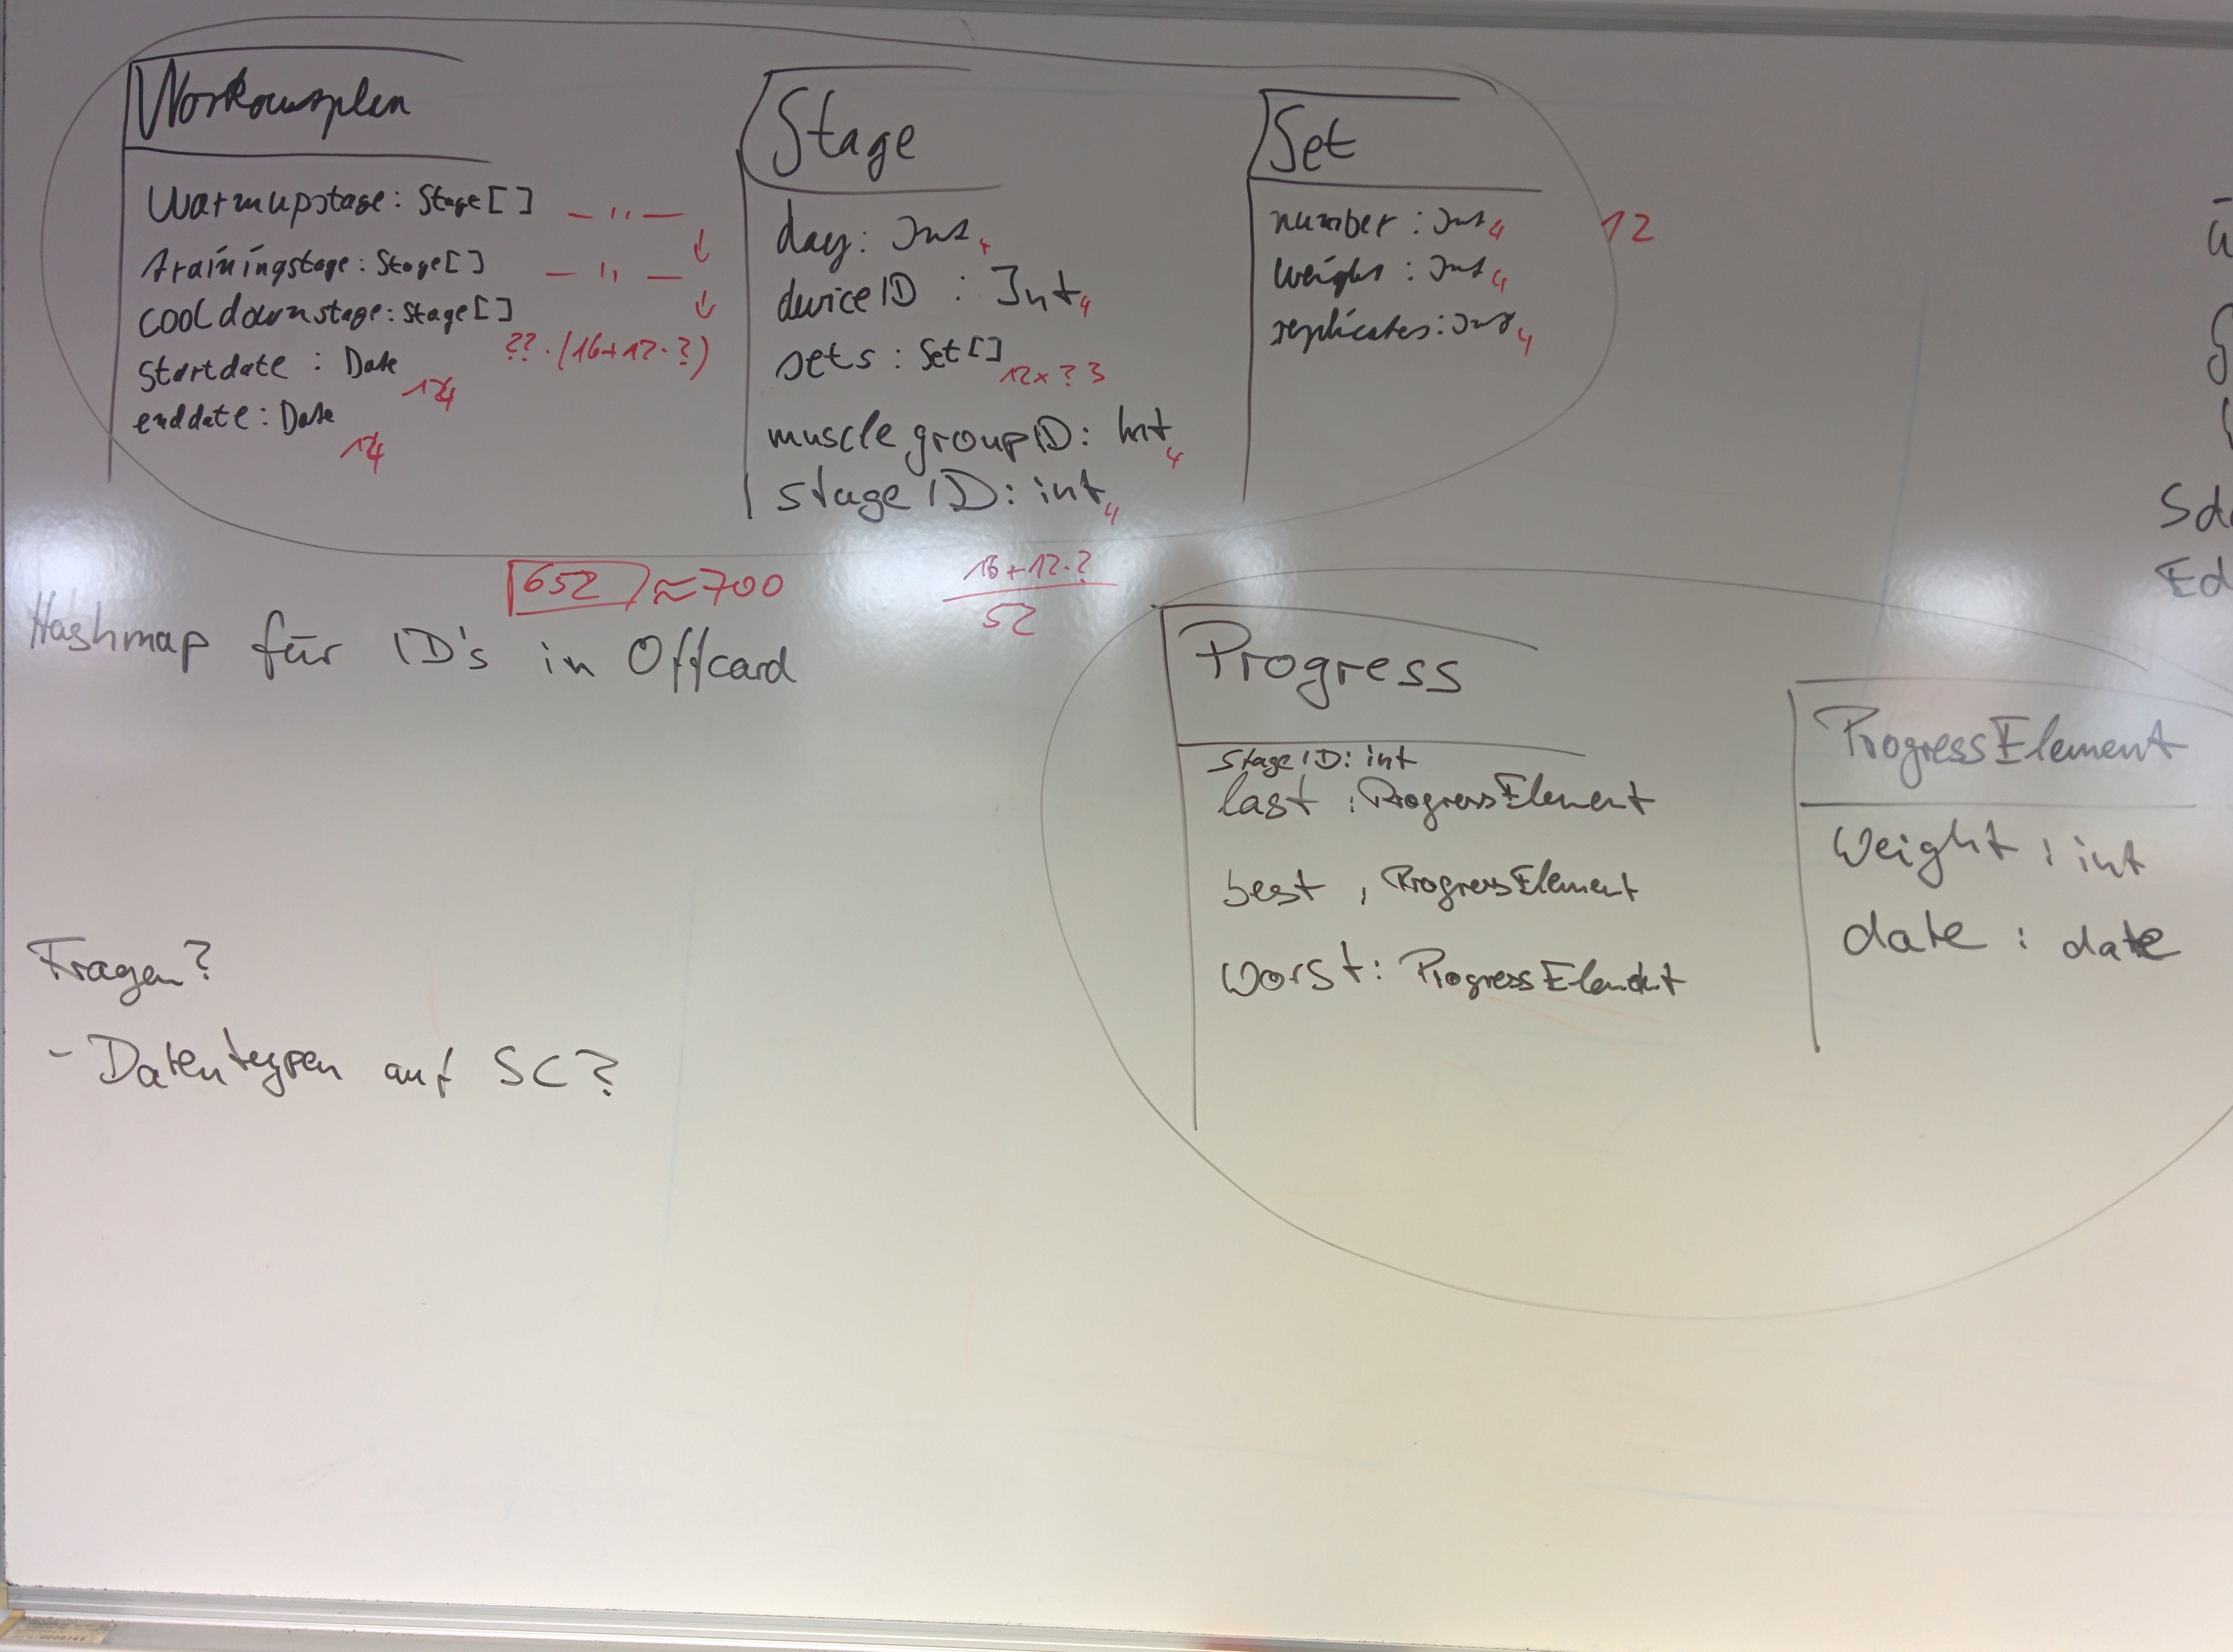 Workoutplan
Warmupstage: Stage[] — " —
trainingstage: Stage[] — " —
cooldownstage: Stage[]
?? · (16+12·?)
startdate : Date
enddate : Date
Stage
day: Int 4
deviceID : Int 4
sets : Set[]
12x ? 3
musclegroupID: Int 4
stageID: int 4
Set
number : Int 4
weight : Int 4
replicates: Int 4
12
652 ≈700
16+12·?
52
Hashmap für ID's in Offcard
Fragen?
- Datentypen auf SC?
Progress
StageID: int
last : ProgressElement
best : ProgressElement
worst: ProgressElement
ProgressElement
Weight : int
date : date